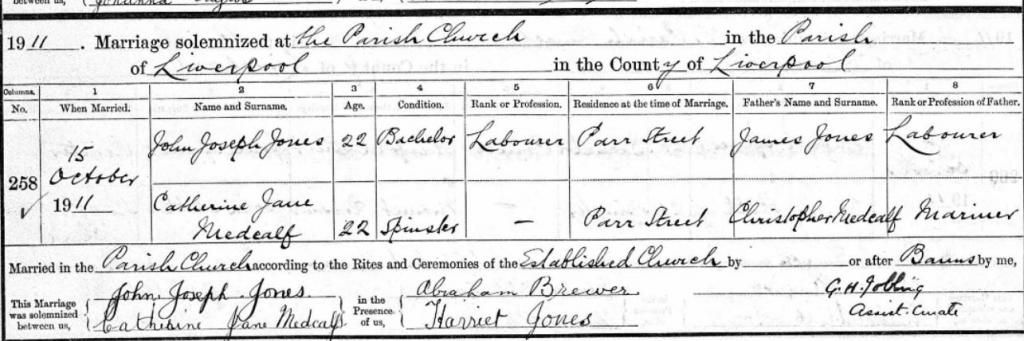 1911. Marriage solemnized at the Parish Church in the Parish
of Liverpool in the County of Liverpool
Columns. 1 2 3 4 5 6 7 8
No. When Married. Name and Surname. Age. Condition. Rank or Profession. Residence at the time of Marriage. Father's Name and Surname. Rank or Profession of Father.
258 15 October 1911
John Joseph Jones 22 Bachelor Labourer Parr Street James Jones Labourer
Catherine Jane
Medcalf 22 Spinster — Parr Street Christopher Medcalf Mariner
Married in the Parish Church according to the Rites and Ceremonies of the Established Church by or after Banns by me,
This Marriage was solemnized between us, John Joseph Jones in the Presence of us, Abraham Brewer G. H. Jobling
Catherine Jane Medcalf Harriet Jones Assist. Curate